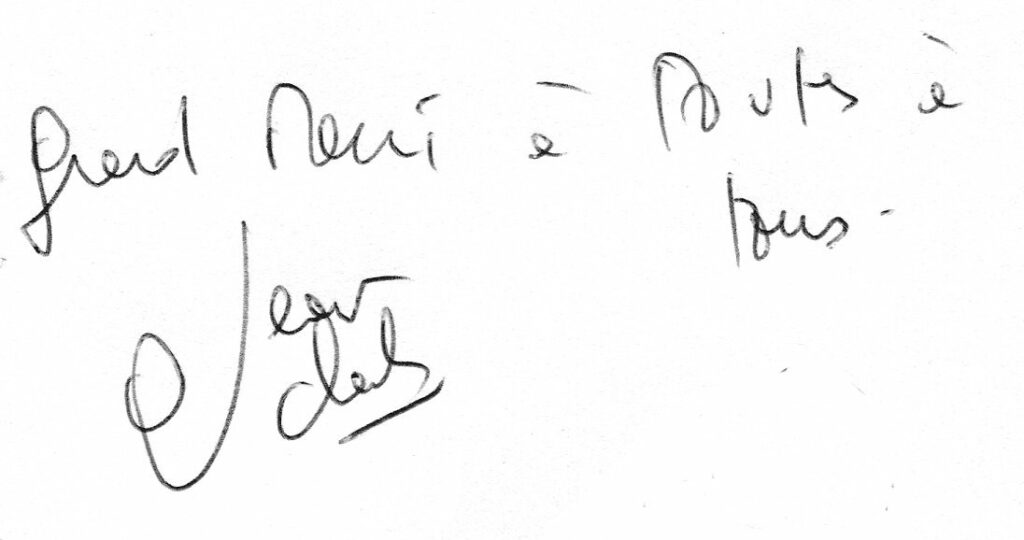 Grand Merci à Toutes à
tous.
Jean
Charles